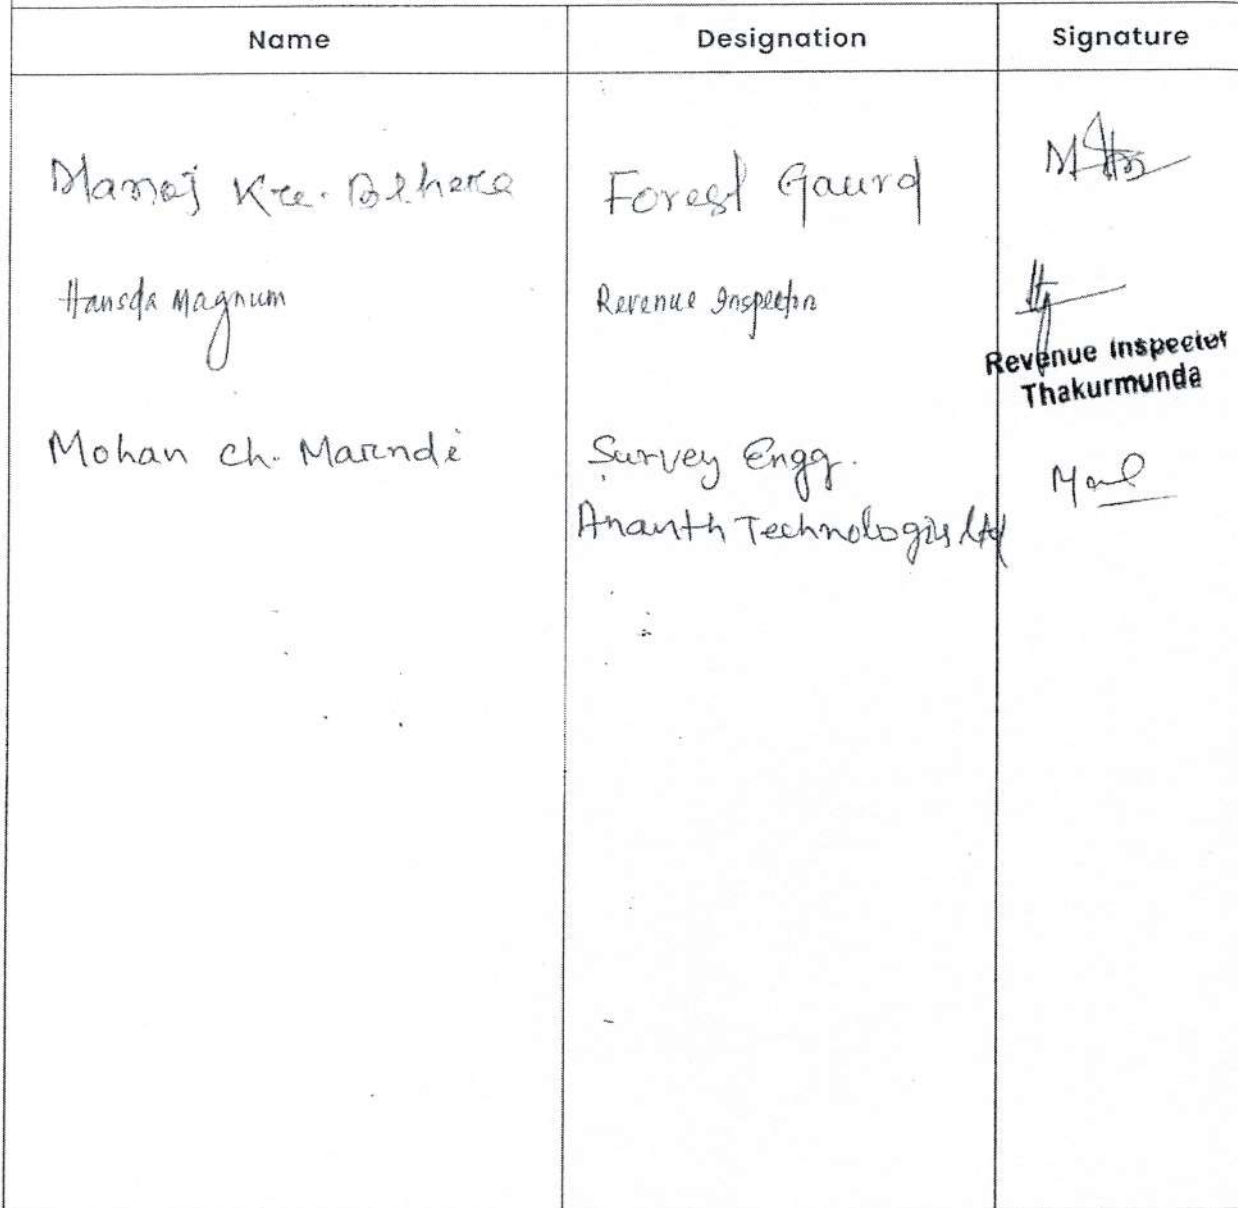 Name Designation Signature
Manoj Kre. Behera Forest Gaurd
Hansda Magnum Revenue Inspector
Revenue Inspector
Thakurmunda
Mohan Ch. Marndi Survey Engg.
Ananth Technologies Ltd